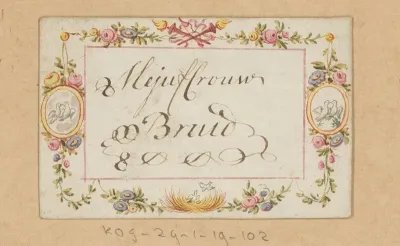 Mejuffrouw
Bruid
KOG-ZG-1-19-102